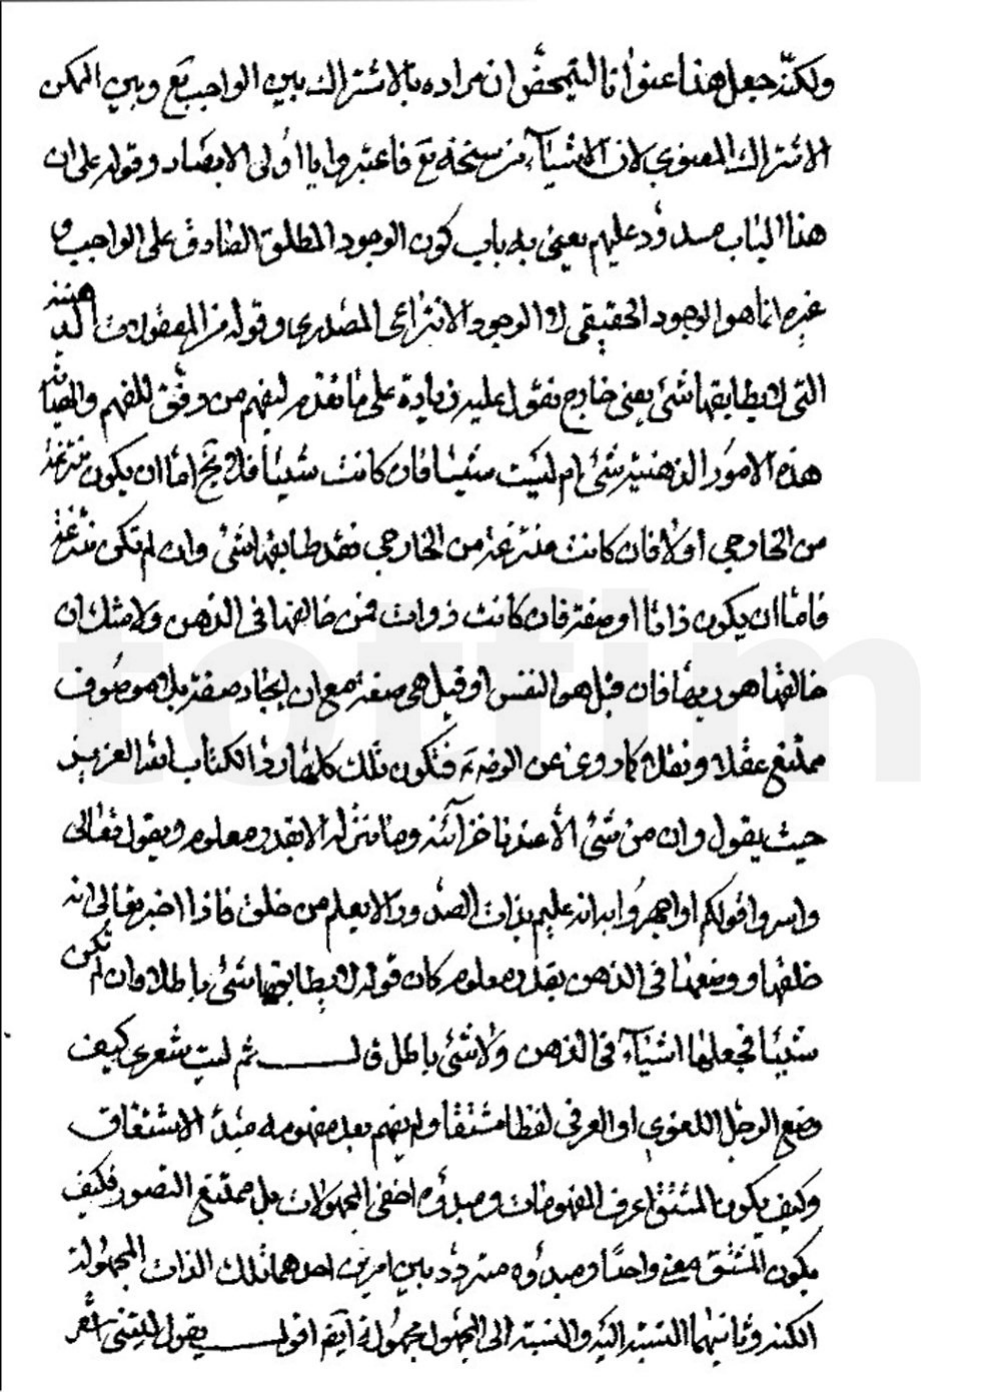 ولكنّه جعل هذا عنوانا ليتمحض ان مراده بالاشتراك بين الواجب تع وبين الممكن
الاشتراك المعنوى لان الاشياء من سنخه تع فاعتبروا يا اولى الابصار وقوله على ان
هذا الباب مسدود عليهم يعنى به باب كون الوجود المطلق الصادق على الواجب و
غيره انما هو الوجود الحقيقى لا الوجود الانتزاعى المصدرى وقوله من المعقولات الذهنية
التى لا يطابقها شئ يعنى خارج نقول عليه زيادة على ما تقدم ليفهم من وفّق للفهم والصيانة
هذه الامور الذهنية شئ ام ليست شيئا فان كانت شيئا فلا يخ اما ان يكون منتزعة
من الخارجى او لا فان كانت منتزعة من الخارجى فقد طابقها شئ وان لم تكن منتزعة
فاما ان يكون ذاتا او صفة فان كانت ذوات فمن خالقها فى الذهن ولا شك ان
خالقها هو ربها فان قيل هو النفس او قيل هى صفة مع ان ايجاد صفة بلا موصوف
ممتنع عقلا ونقلا كما روى عن الرضا ع فتكون تلك كلها رد الكتاب الله العزيز
حيث يقول وان من شئ الا عندنا خزائنه وما ننزله الا بقدر معلوم ويقول تعالى
واسروا قولكم او اجهروا به انه عليم بذات الصدور الا يعلم من خلق فاذا اخبر تعالى انه
خلقها ووضعها فى الذهن بقدر معلوم كان قوله لا يطابقها شئ باطلا وان لم تكن
شيئا فجعلها اشياء فى الذهن ولا شئ باطل قـــال ثم ليت شعرى كيف
وضع الرجل اللغوى او العرفى لفظا مشتقا ولم يفهم بعد مفهومه مبدء الاشتقاق
وكيف يكون المشتق اعرف المفهومات ومبدؤه اخفى المجهولات بل ممتنع التصور فكيف
يكون المشتق معنى واحدا ومبدؤه متردد بين امرين احدهما تلك الذات المجهولة
الكنه وثانيهما النسبة اليه والنسبة الى المجهول مجهولة ايضا اقول يقول